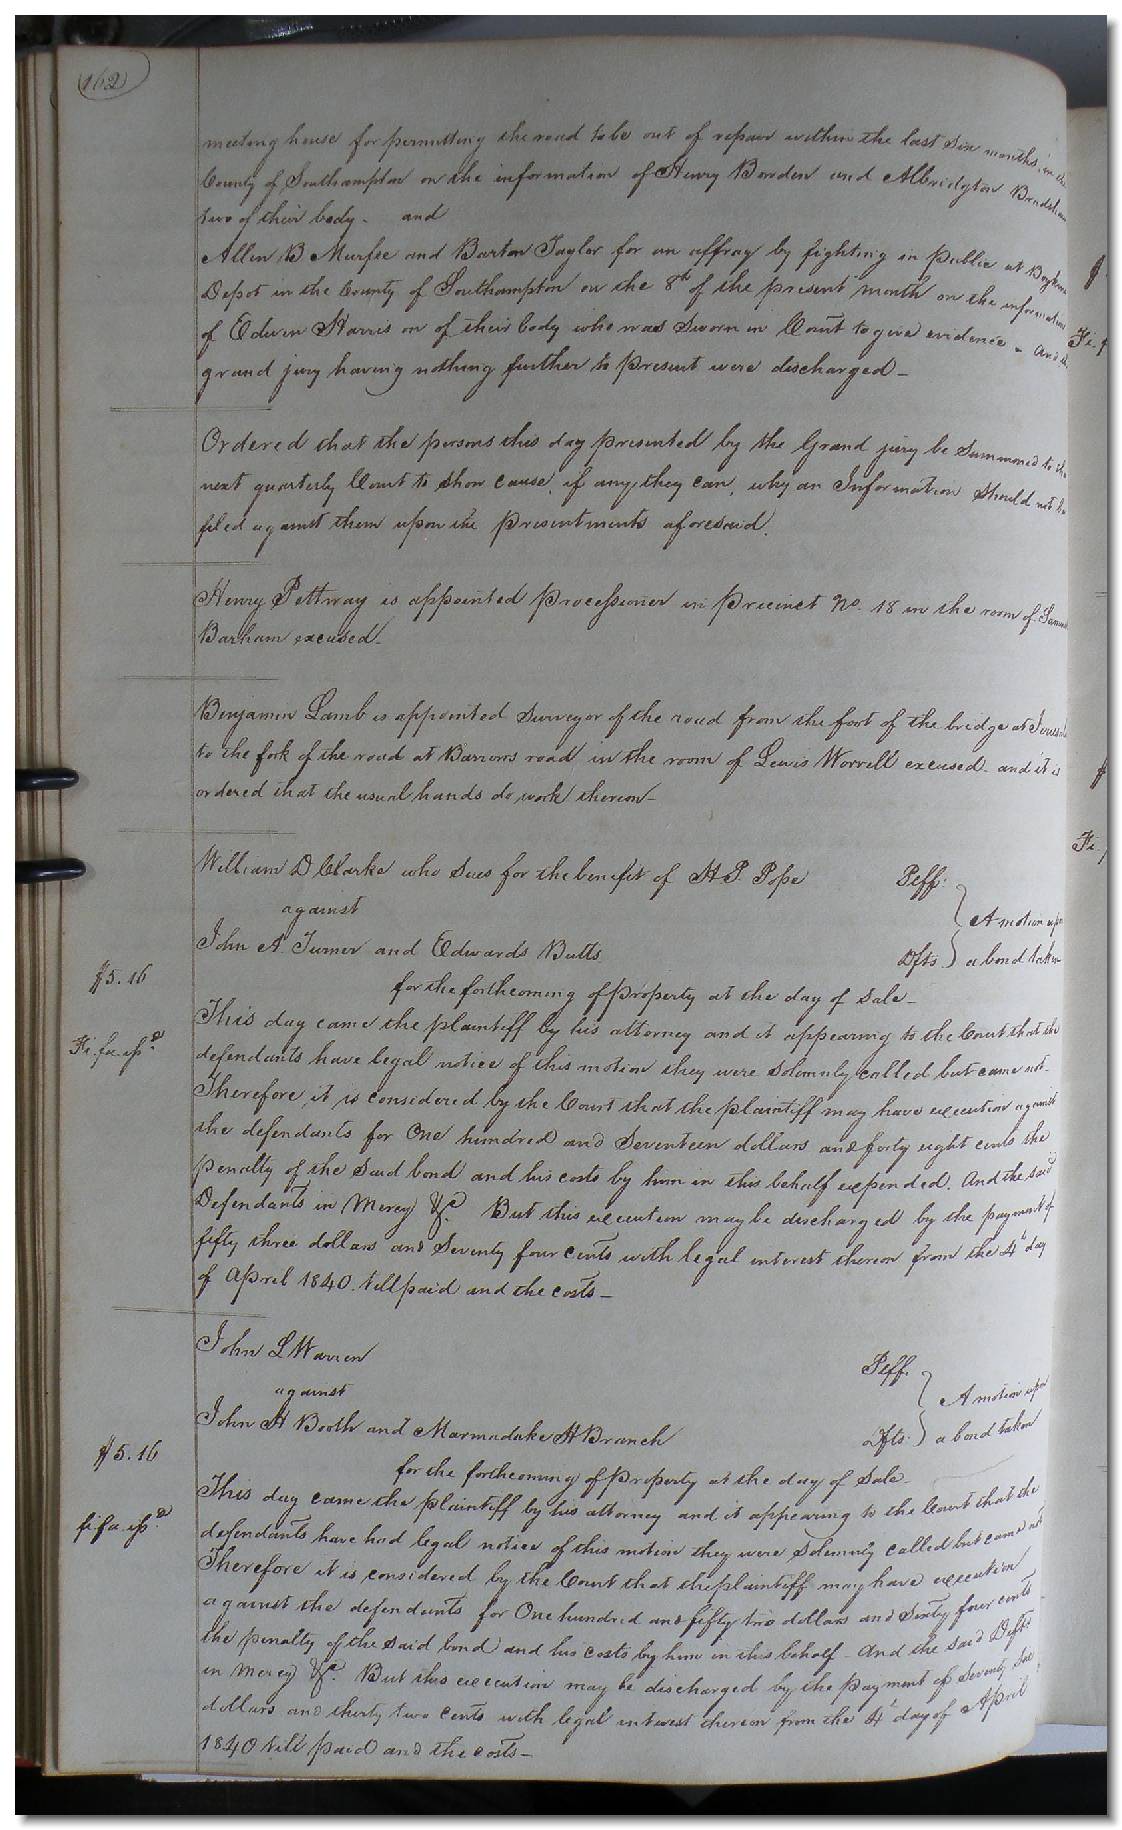 162
meeting house for permitting the road to be out of repair within the last Six months, in the
County of Southampton on the information of Henry Bowden and Albridgton Bradshaw
two of their body - and
Allen B Murfee and Barton Taylor for an affray by fighting in public at Boykins
Depot in the County of Southampton on the 8th of the present month on the information
of Edwin Harris on of their body who was Sworn in Court to give evidence - And the
grand jury having nothing further to present were discharged -
Ordered that the persons this day presented by the Grand jury be Summoned to the
next quarterly Court to Show cause, if any they can, why an Information Should not be
filed against them upon the presentments aforesaid.
Henry Pettway is appointed Processioner in Precinct No. 18 in the room of Samuel
Barham excused -
Benjamin Lamb is appointed Surveyor of the road from the foot of the bridge at
to the fork of the road at Barrows road in the room of Lewis Worrell excused - and it is
ordered that the usual hands do work thereon -
William D Clarke who Sues for the benefit of H. P. Pope Plff:
against
A motion upon
John A Turner and Edwards Butts Dfts a bond taken
$5.16
for the forthcoming of property at the day of Sale -
This day came the plaintiff by his attorney and it appearing to the Court that the
Fi. fa. issd
defendants have legal notice of this motion they were Solemnly called but came not -
Therefore it is considered by the Court that the plaintiff may have execution against
the defendants for One hundred and Seventeen dollars and forty eight cents the
penalty of the Said bond and his costs by him in this behalf expended. And the said
Defendants in Mercy &c. But this execution may be discharged by the payment of
fifty three dollars and Seventy four cents with legal interest thereon from the 4th day
of April 1840. till paid and the costs -
John L Warren Plff.
against
A motion upon
John H Booth and Marmaduke H Branch Dfts a bond taken
$5.16
for the forthcoming of property at the day of Sale -
This day came the plaintiff by his attorney and it appearing to the Court that the
fi. fa. issd
defendants have had legal notice of this motion they were Solemnly called but came not
Therefore it is considered by the Court that the plaintiff may have execution
against the defendants for One hundred and fifty two dollars and Sixty four cents
the penalty of the Said bond and his costs by him in this behalf - And the Said Defts
in Mercy &c. But this execution may be discharged by the payment of Seventy Six
dollars and thirty two cents with legal interest thereon from the 4th day of April
1840 till paid and the costs -